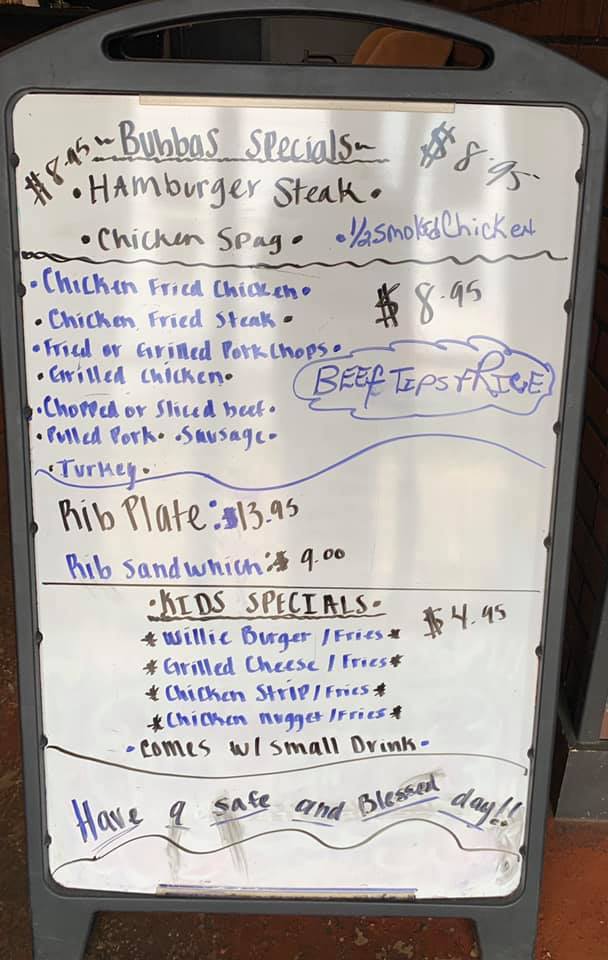 ~Bubbas Specials~
$8.95 $8.95
•Hamburger Steak•
•Chicken Spag• •1/2 Smoked Chicken
•Chicken Fried Chicken•
$8.95
•Chicken Fried Steak•
•Fried or Grilled PorkChops•
•Grilled Chicken•
BEEF TIPS & RICE
•Chopped or Sliced beef•
•Pulled Pork• •Sausage•
•Turkey•
Rib Plate: $13.95
Rib Sandwhich: $ 9.00
•KIDS SPECIALS• $4.95
*Willie Burger /Fries*
*Grilled Cheese /Fries*
*Chicken Strip /Fries*
*Chicken Nugget /Fries*
•Comes w/ Small Drink•
Have a safe and Blessed day!!